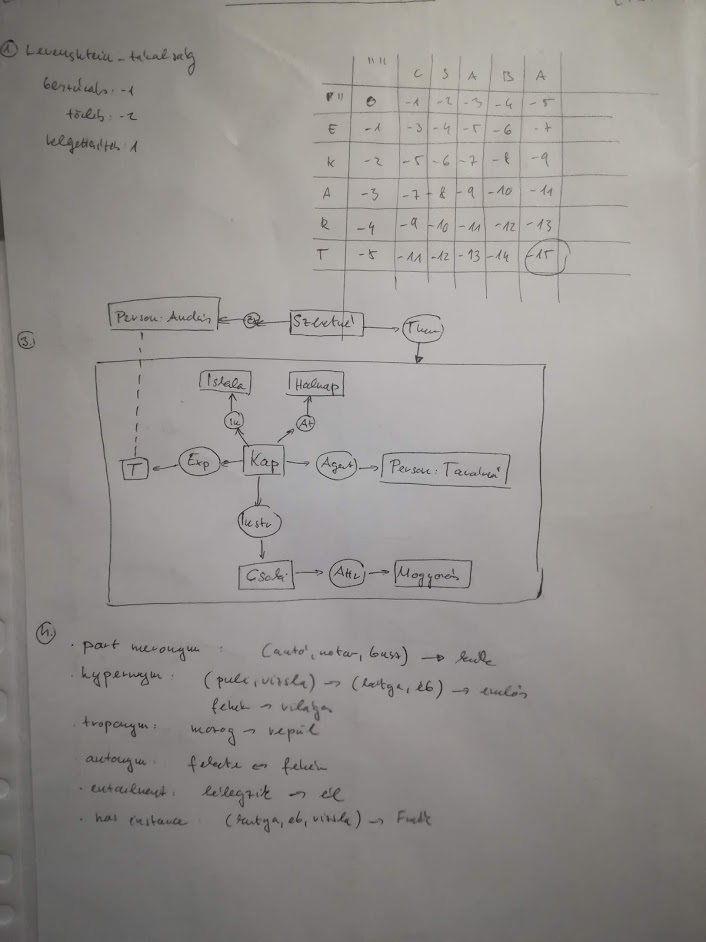 1. Levenshtein-távolság
beszúrás: -1
törlés: -2
helyettesítés: 1
"" C S A B A
"" 0 -1 -2 -3 -4 -5
E -1 -3 -4 -5 -6 -7
K -2 -5 -6 -7 -8 -9
A -3 -7 -8 -9 -10 -11
R -4 -9 -10 -11 -12 -13
T -5 -11 -12 -13 -14 -15
3.
Person: András
Szeretné
Them
Iskola
Holnap
In
At
T
Exp
Kap
Agent
Person: Tanárnő
Instr
Csoki
Attr
Mogyorós
4.
• part meronym: (autó, motor, busz) →
• hypernym: (puli, vizsla) → (kutya, eb) → emlős
fehér → világos
• troponym: morog → repül
antonym: fekete ↔ fehér
• entailment: lélegzik → él
• has instance: (kutya, eb, vizsla) →